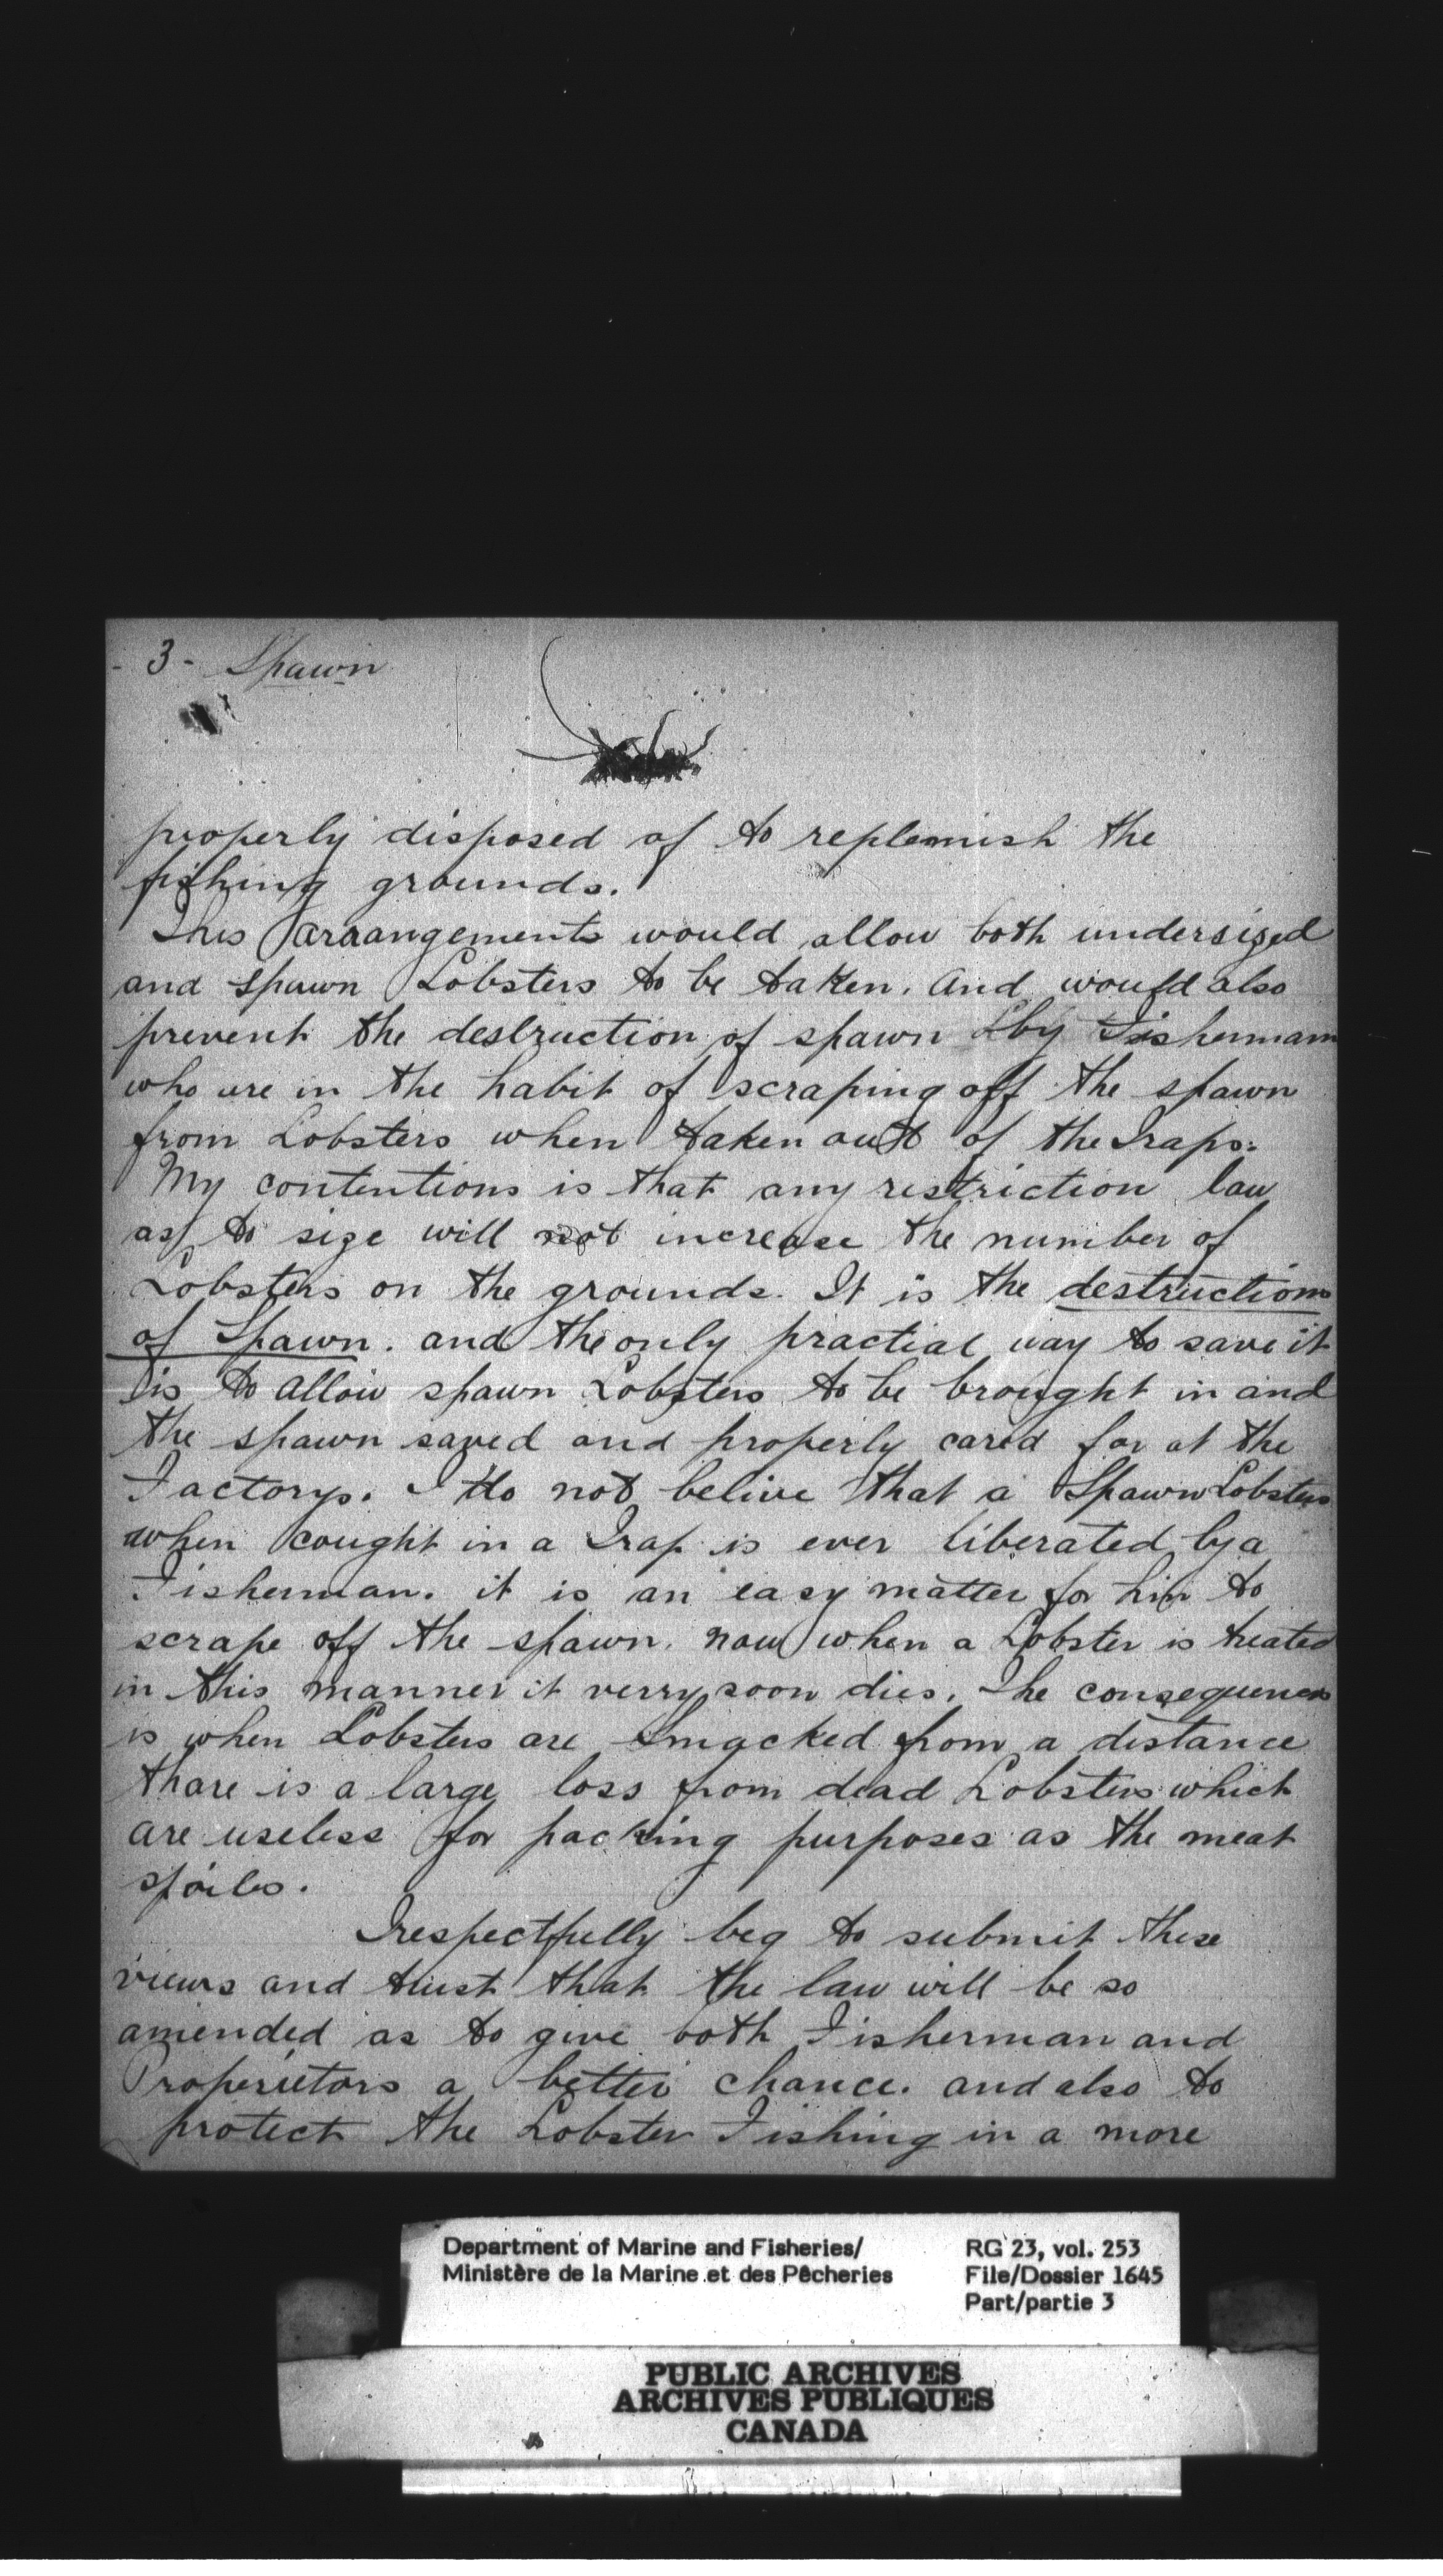 - 3 - Spawn
properly disposed of to replemish the
fishing grounds.
This arraangements would allow both undersized
and spawn Lobsters to be taken. And would also
prevent the destruction of spawn by Fishermam
who are in the habit of scraping off the spawn
from Lobsters when taken out of the Traps.
My contentions is that any restriction law
as to size will not increase the number of
Lobsters on the grounds. It is the destructions
of Spawn. and the only practial way to save it
is to allow spawn Lobsters to be brought in and
the spawn saved and properly cared for at the
Factorys. I do not belive that a Spawn Lobsters
when cought in a Trap is ever liberated by a
Fisherman. it is an easy matter for him to
scrape off the spawn. now when a Lobster is treated
in this manner it verry soon dies. The consequences
is when Lobsters are Smacked from a distance
thare is a large loss from dead Lobsters which
are useless for packing purposes as the meat
spoiles.
I respectfully beg to submit these
views and trust that the law will be so
amended as to give both Fisherman and
Properietors a better chance. and also to
protect the Lobster Fishing in a more
Department of Marine and Fisheries/
Ministère de la Marine et des Pêcheries
RG 23, vol. 253
File/Dossier 1645
Part/partie 3
PUBLIC ARCHIVES
ARCHIVES PUBLIQUES
CANADA